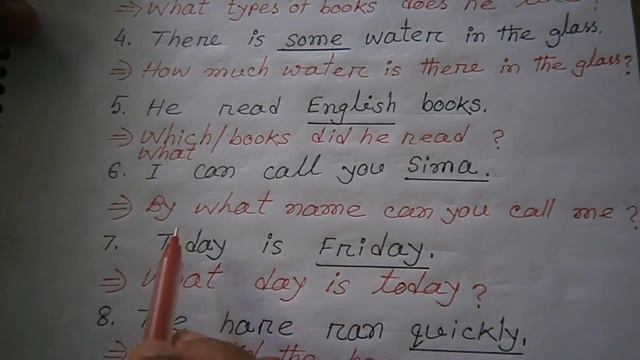 ⇒ What types of books does he
4. There is some water in the glass.
⇒ How much water is there in the glass?
5. He read English books.
⇒ Which/books did he read ?
What
6. I can call you Sima.
⇒ By what name can you call me ?
7. Today is Friday.
⇒ What day is today?
8. The hare ran quickly.
⇒ the